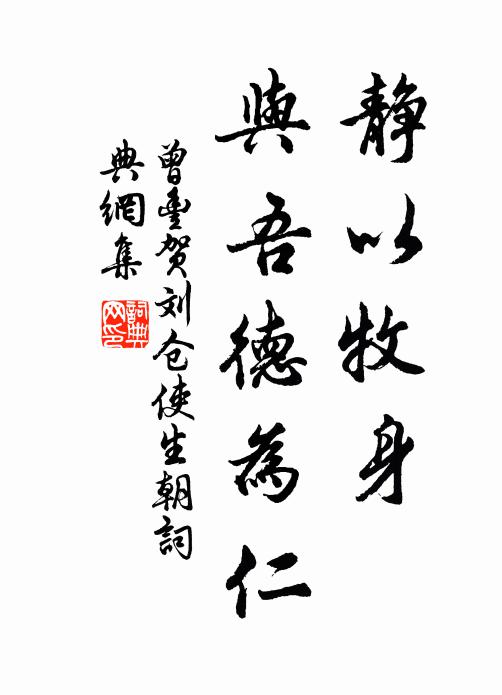 静以牧身
與吾德為仁
曾豐贺刘仓使生朝詞
典網集
詞典网印